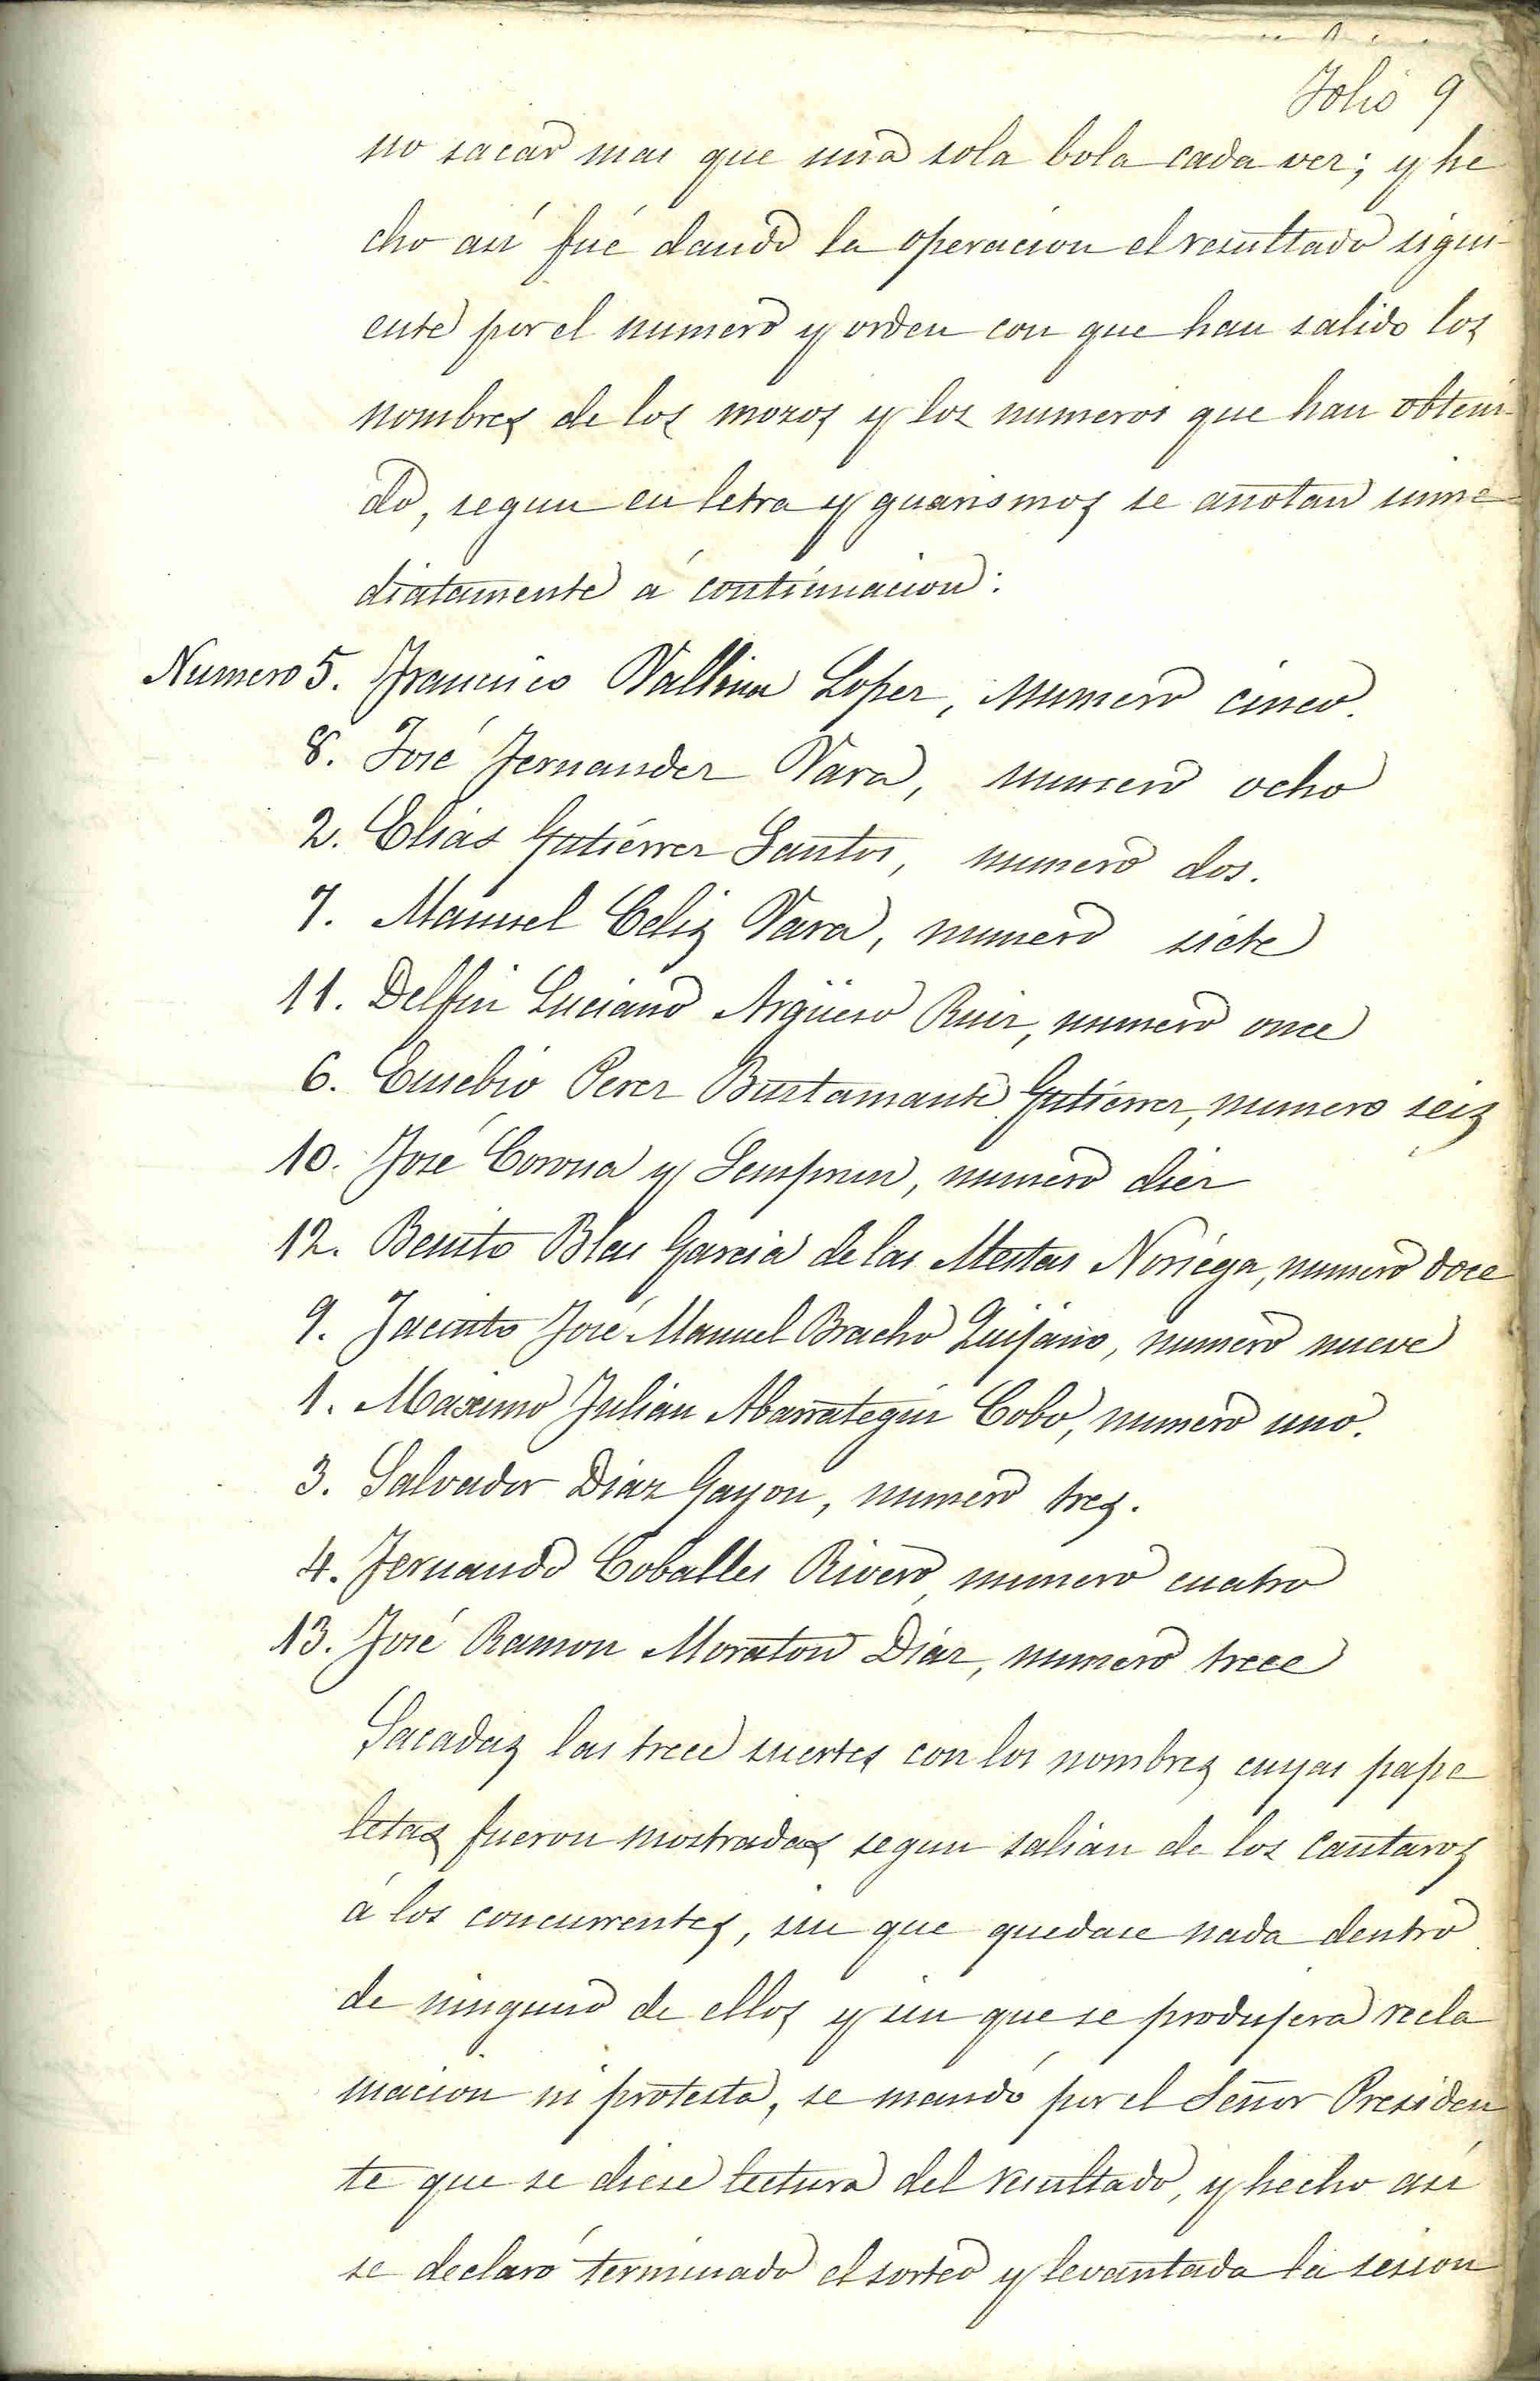 Folio 9
no sacar mas que una sola bola cada vez; y he
cho así fué dando la operacion el resultado sigui-
ente por el numero y orden con que han salido los
nombres de los mozos y los numeros que han obteni-
do, segun en letra y guarismos se anotan inme-
diatamente á continuacion:
Numero 5. Francisco Vallina Lopez, numero cinco.
8. José Fernandez Vara, numero ocho
2. Elías Gutiérrez Santos, numero dos.
7. Manuel Celiz Vara, numero siete
11. Delfin Luciano Argüeso Ruiz, numero once
6. Eusebio Perez Bustamante Gutiérrez, numero seis
10. José Corona y Semprun, numero diez
12. Benito Blas Garcia de las Mestas Noriega, numero doce
9. Jacinto José Manuel Bracho Quijano, numero nueve
1. Maximo Julian Abarrategui Cobo, numero uno.
3. Salvador Diaz Gayon, numero tres.
4. Fernando Coballes Rivero, numero cuatro
13. José Ramon Moraton Díaz, numero trece
Sacadas las trece suertes con los nombres cuyas pape
letas fueron mostradas segun salian de los cantaros
á los concurrentes, sin que quedase nada dentro
de ninguno de ellos y sin que se produjera recla
macion ni protesta, se mandó por el Señor Presiden
te que se diese lectura del resultado, y hecho así
se declaró terminado el sorteo y levantada la sesion